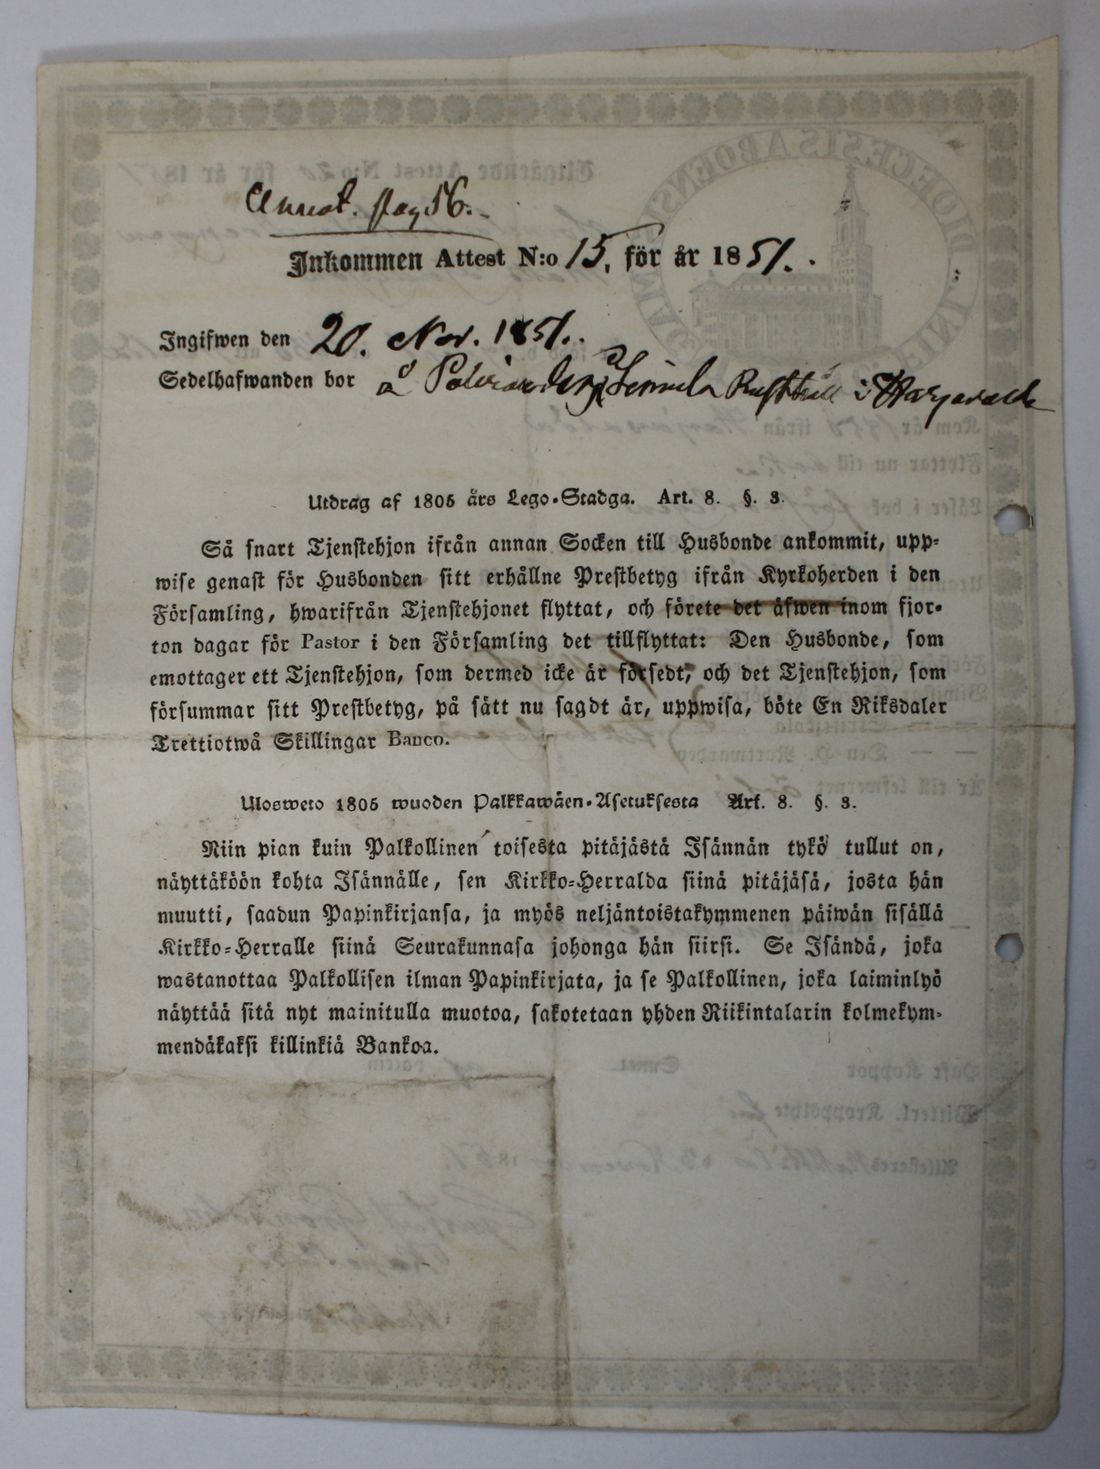 Annot. pag 56.
Inkommen Attest N:o 15, för år 1851.
Ingifwen den 20. Nov. 1851.
Sedelhafwanden bor å Rusthåll i Harjavalda
Utdrag af 1805 års Lego-Stadga. Art. 8. §. 3.
Så snart Tjenstehjon ifrån annan Socken till Husbonde ankommit, upp-
wise genast för Husbonden sitt erhållne Prestbetyg ifrån Kyrkoherden i den
Församling, hwarifrån Tjenstehjonet flyttat, och förete det äfwen inom fjor-
ton dagar för Pastor i den Församling det tillflyttat: Den Husbonde, som
emottager ett Tjenstehjon, som dermed icke är försedt, och det Tjenstehjon, som
försummar sitt Prestbetyg, på sätt nu sagdt är, uppwisa, böte En Riksdaler
Trettiotwå Skillingar Banco.
Ulosweto 1805 wuoden Palkkawäen-Asetuksesta Art. 8. §. 3.
Niin pian kuin Palkollinen toisesta pitäjästä Isännän tykö tullut on,
näyttäköön kohta Isännälle, sen Kirkko-Herralda siinä pitäjäsä, josta hän
muutti, saadun Papinkirjansa, ja myös neljäntoistakymmenen päiwän sisällä
Kirkko-Herralle siinä Seurakunnasa johonga hän siirsi. Se Isändä, joka
wastanottaa Palkollisen ilman Papinkirjata, ja se Palkollinen, joka laiminlyö
näyttää sitä nyt mainitulla muotoa, sakotetaan yhden Riikintalarin kolmekym-
mendäkaksi killinkiä Bankoa.